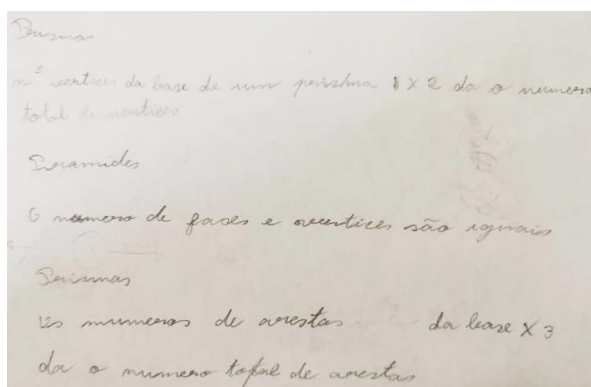 Prismas
nº vertices da base de um prisma X 2 da o numero
total de vertices
Piramides
O numero de faces e vertices são iguais
Prismas
Os numeros de arestas da base X 3
da o numero total de arestas